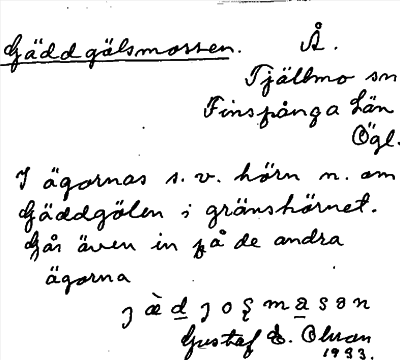 Gäddgölsmossen. Å.
Tjällmo sn
Finspånga län
Ögl.
I ägornas s.v. hörn n. om
Gäddgölen i gränshörnet.
Går även in på de andra
ägorna
Gustaf E. Olsson
1933.